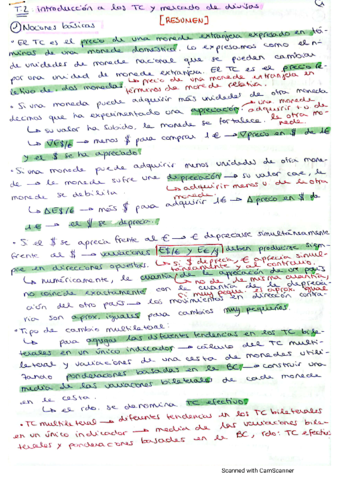 T.2 introducción a los TC y mercado de divisas:
[RESUMEN]
① Nociones básicas
• El TC es el precio de una moneda extranjera expresado en tér-
minos de una moneda doméstica. Lo expresamos como el nº
de unidades de moneda que se pueden cambiar
por una unidad de moneda extranjera. El TC es el precio re-
lativo de dos monedas
↳ precio de una moneda extranjera en
términos de moneda relativa.
• Si una moneda puede adquirir más unidades de otra moneda
decimos que ha experimentado una apreciación
→ una moneda
adquirir + u de
la otra mo-
neda.
↳ su valor ha subido, la moneda se fortalece.
↳ ∇E$/€ → menos $ para comprar 1€ → ∇precio en $ de 1€
y el $ se ha apreciado.
• Si una moneda puede adquirir menos unidades de otra mone-
da → la moneda sufre una depreciación → su valor cae, la
moneda se debilita.
↳ adquirir menos u de la otra
moneda
↳ ΔE$/€ → más $ para adquirir 1€ → Δ precio en $ de
1€ → el $ se deprecia.
• Si el $ se aprecia frente al € → € depreciarse simultáneamente
frente al $ → variaciones E$/€ y E€/$ deben producirse siem-
pre en direcciones opuestas.
↳ Si $ deprecia, € aprecia simul-
táneamente y al contrario.
↳ numéricamente, la cuantía de la apreciación de un país
no coincide exactamente con la cuantía de la deprecia-
ción del otro país → los movimientos en dirección contra-
ria son aprox. iguales para cambios muy pequeños
• Tipo de cambio multilateral:
↳ para agregar las diferentes tendencias en los TC bila-
terales en un único indicador → cálculo del TC multi-
lateral y variaciones de una cesta de monedas utili-
zando ponderaciones basadas en la BC → construir una
media de las variaciones bilaterales de cada moneda
en la cesta.
↳ el rdo. se denomina TC efectivo
• TC multilateral → diferentes tendencias en los TC bilaterales
en un único indicador → media de las variaciones bila-
terales y ponderaciones basadas en la BC, rdo: TC efectivo
Scanned with CamScanner